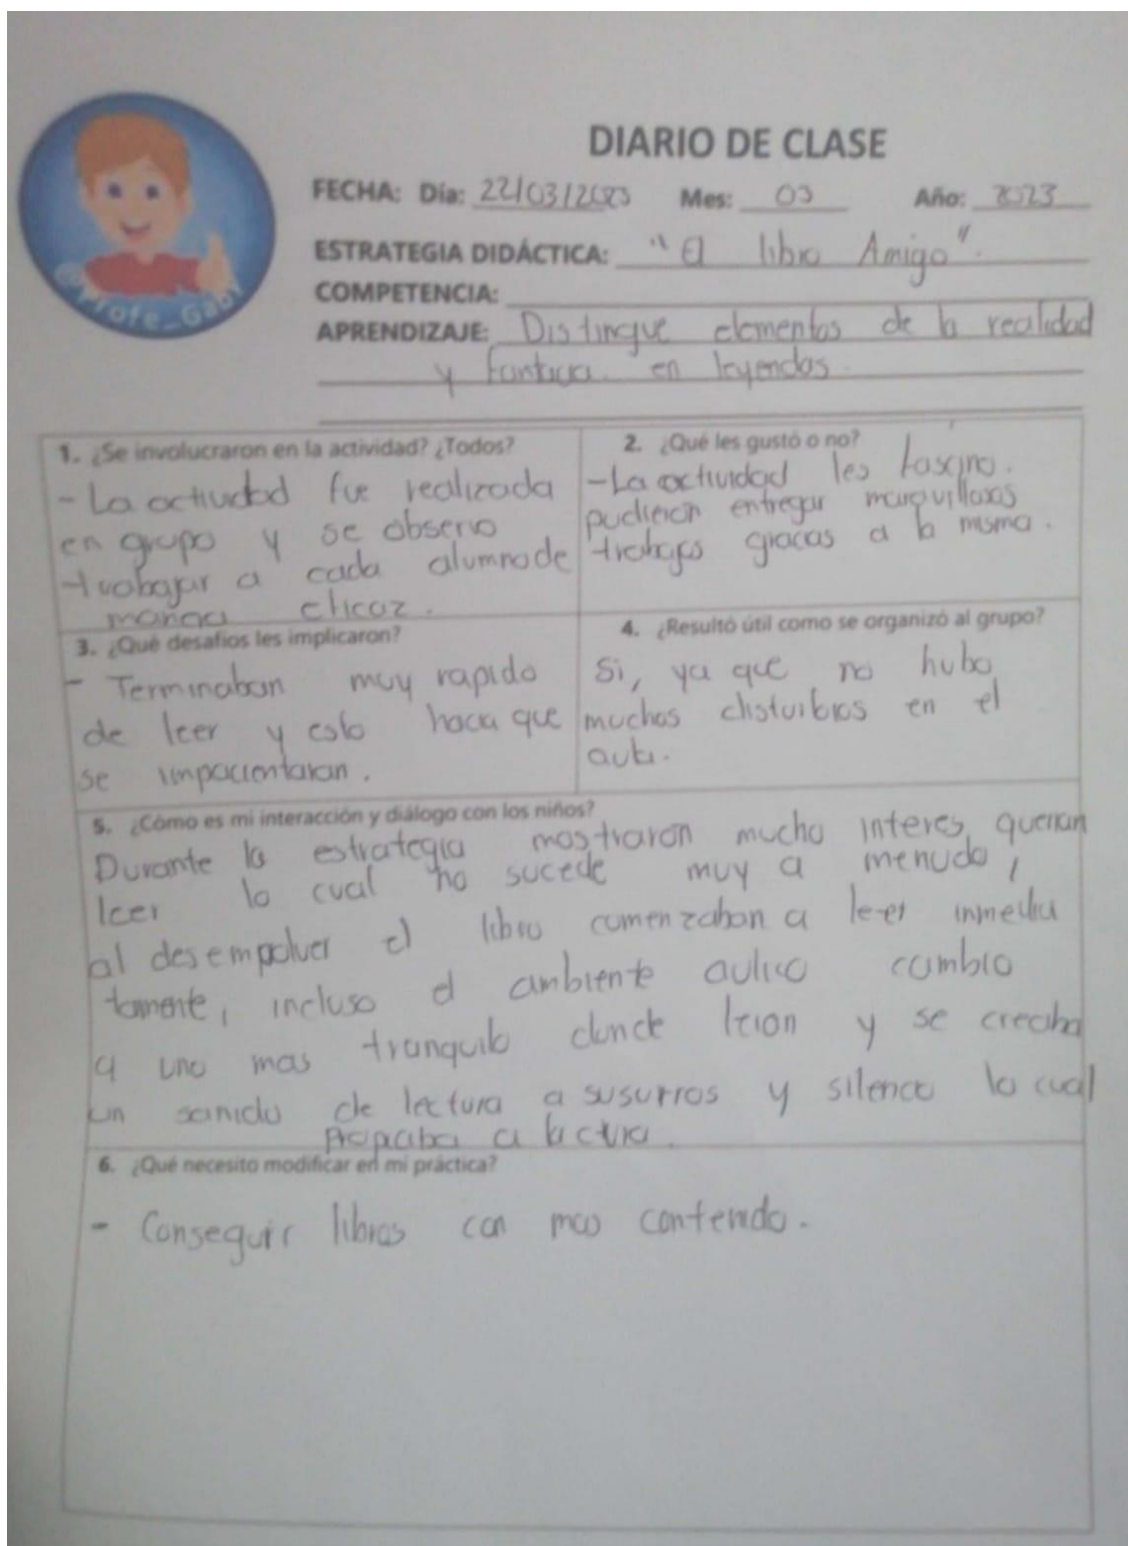 @Profe_Gaby
DIARIO DE CLASE
FECHA: Día: 22/03/2023 Mes: 03 Año: 2023
ESTRATEGIA DIDÁCTICA: "El libro Amigo".
COMPETENCIA:
APRENDIZAJE: Distingue elementos de la realidad
y en leyendas.
1. ¿Se involucraron en la actividad? ¿Todos?
- La actividad fue realizada
en grupo y se observo
trabajar a cada alumno de
eficaz.
2. ¿Qué les gustó o no?
- La actividad les fascino.
pudieron entregar maravillosos
trabajos gracias a la misma.
3. ¿Qué desafíos les implicaron?
- Terminaban muy rapido
de leer y esto hacia que
se impacientaran.
4. ¿Resultó útil como se organizó al grupo?
Si, ya que no hubo
muchos disturbios en el
aula.
5. ¿Cómo es mi interacción y diálogo con los niños?
Durante la estrategia mostraron mucho interes, querian
leer lo cual no sucede muy a menudo,
al desempolver el libro comenzaban a leer inmedia
tamente, incluso el ambiente aulico cambio
a uno mas tranquilo donde leian y se creaba
un sonido de lectura a susurros y silencio lo cual
a lectura.
6. ¿Qué necesito modificar en mi práctica?
- Conseguir libros con mas contenido.